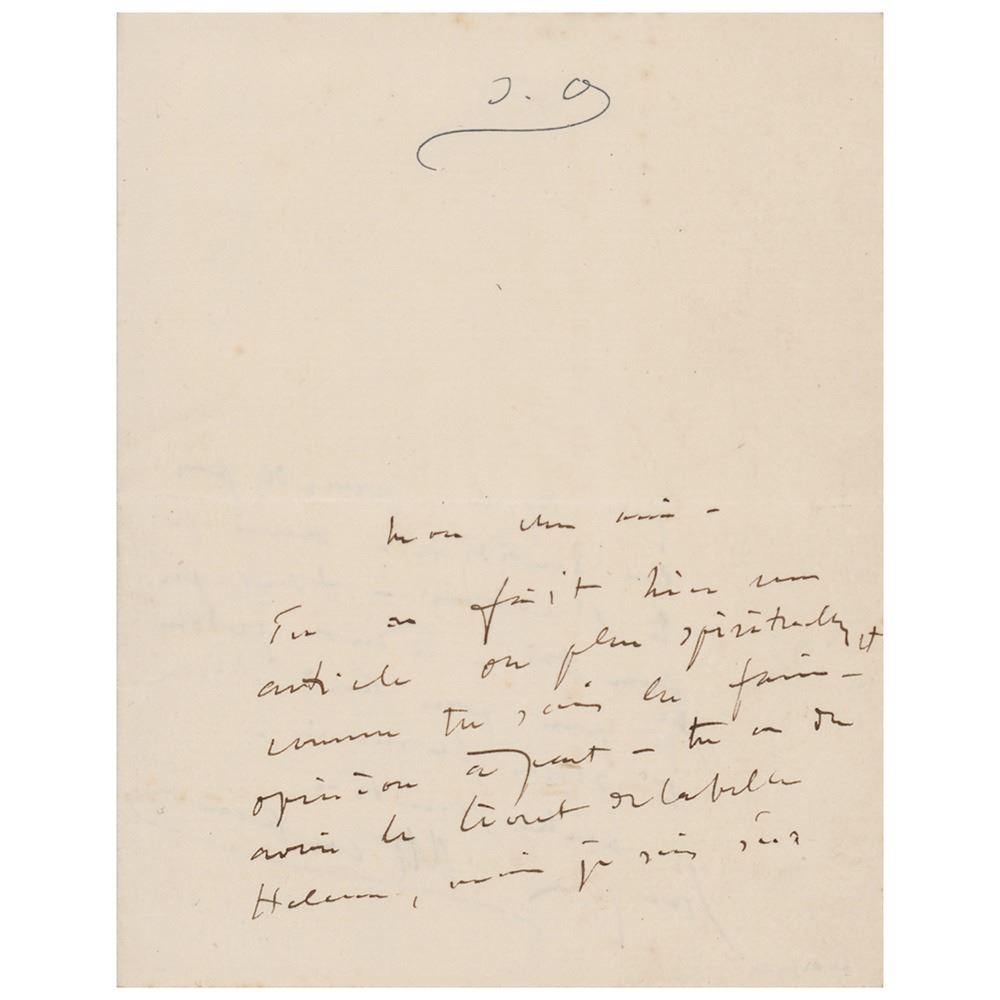 J. O
Mon cher ami –
Tu as fait hier un
article on plus spirituellt
comme tu sais les faire –
opinion à part – tu as du
avoir le livret de la belle
Helene, mais je suis sûr